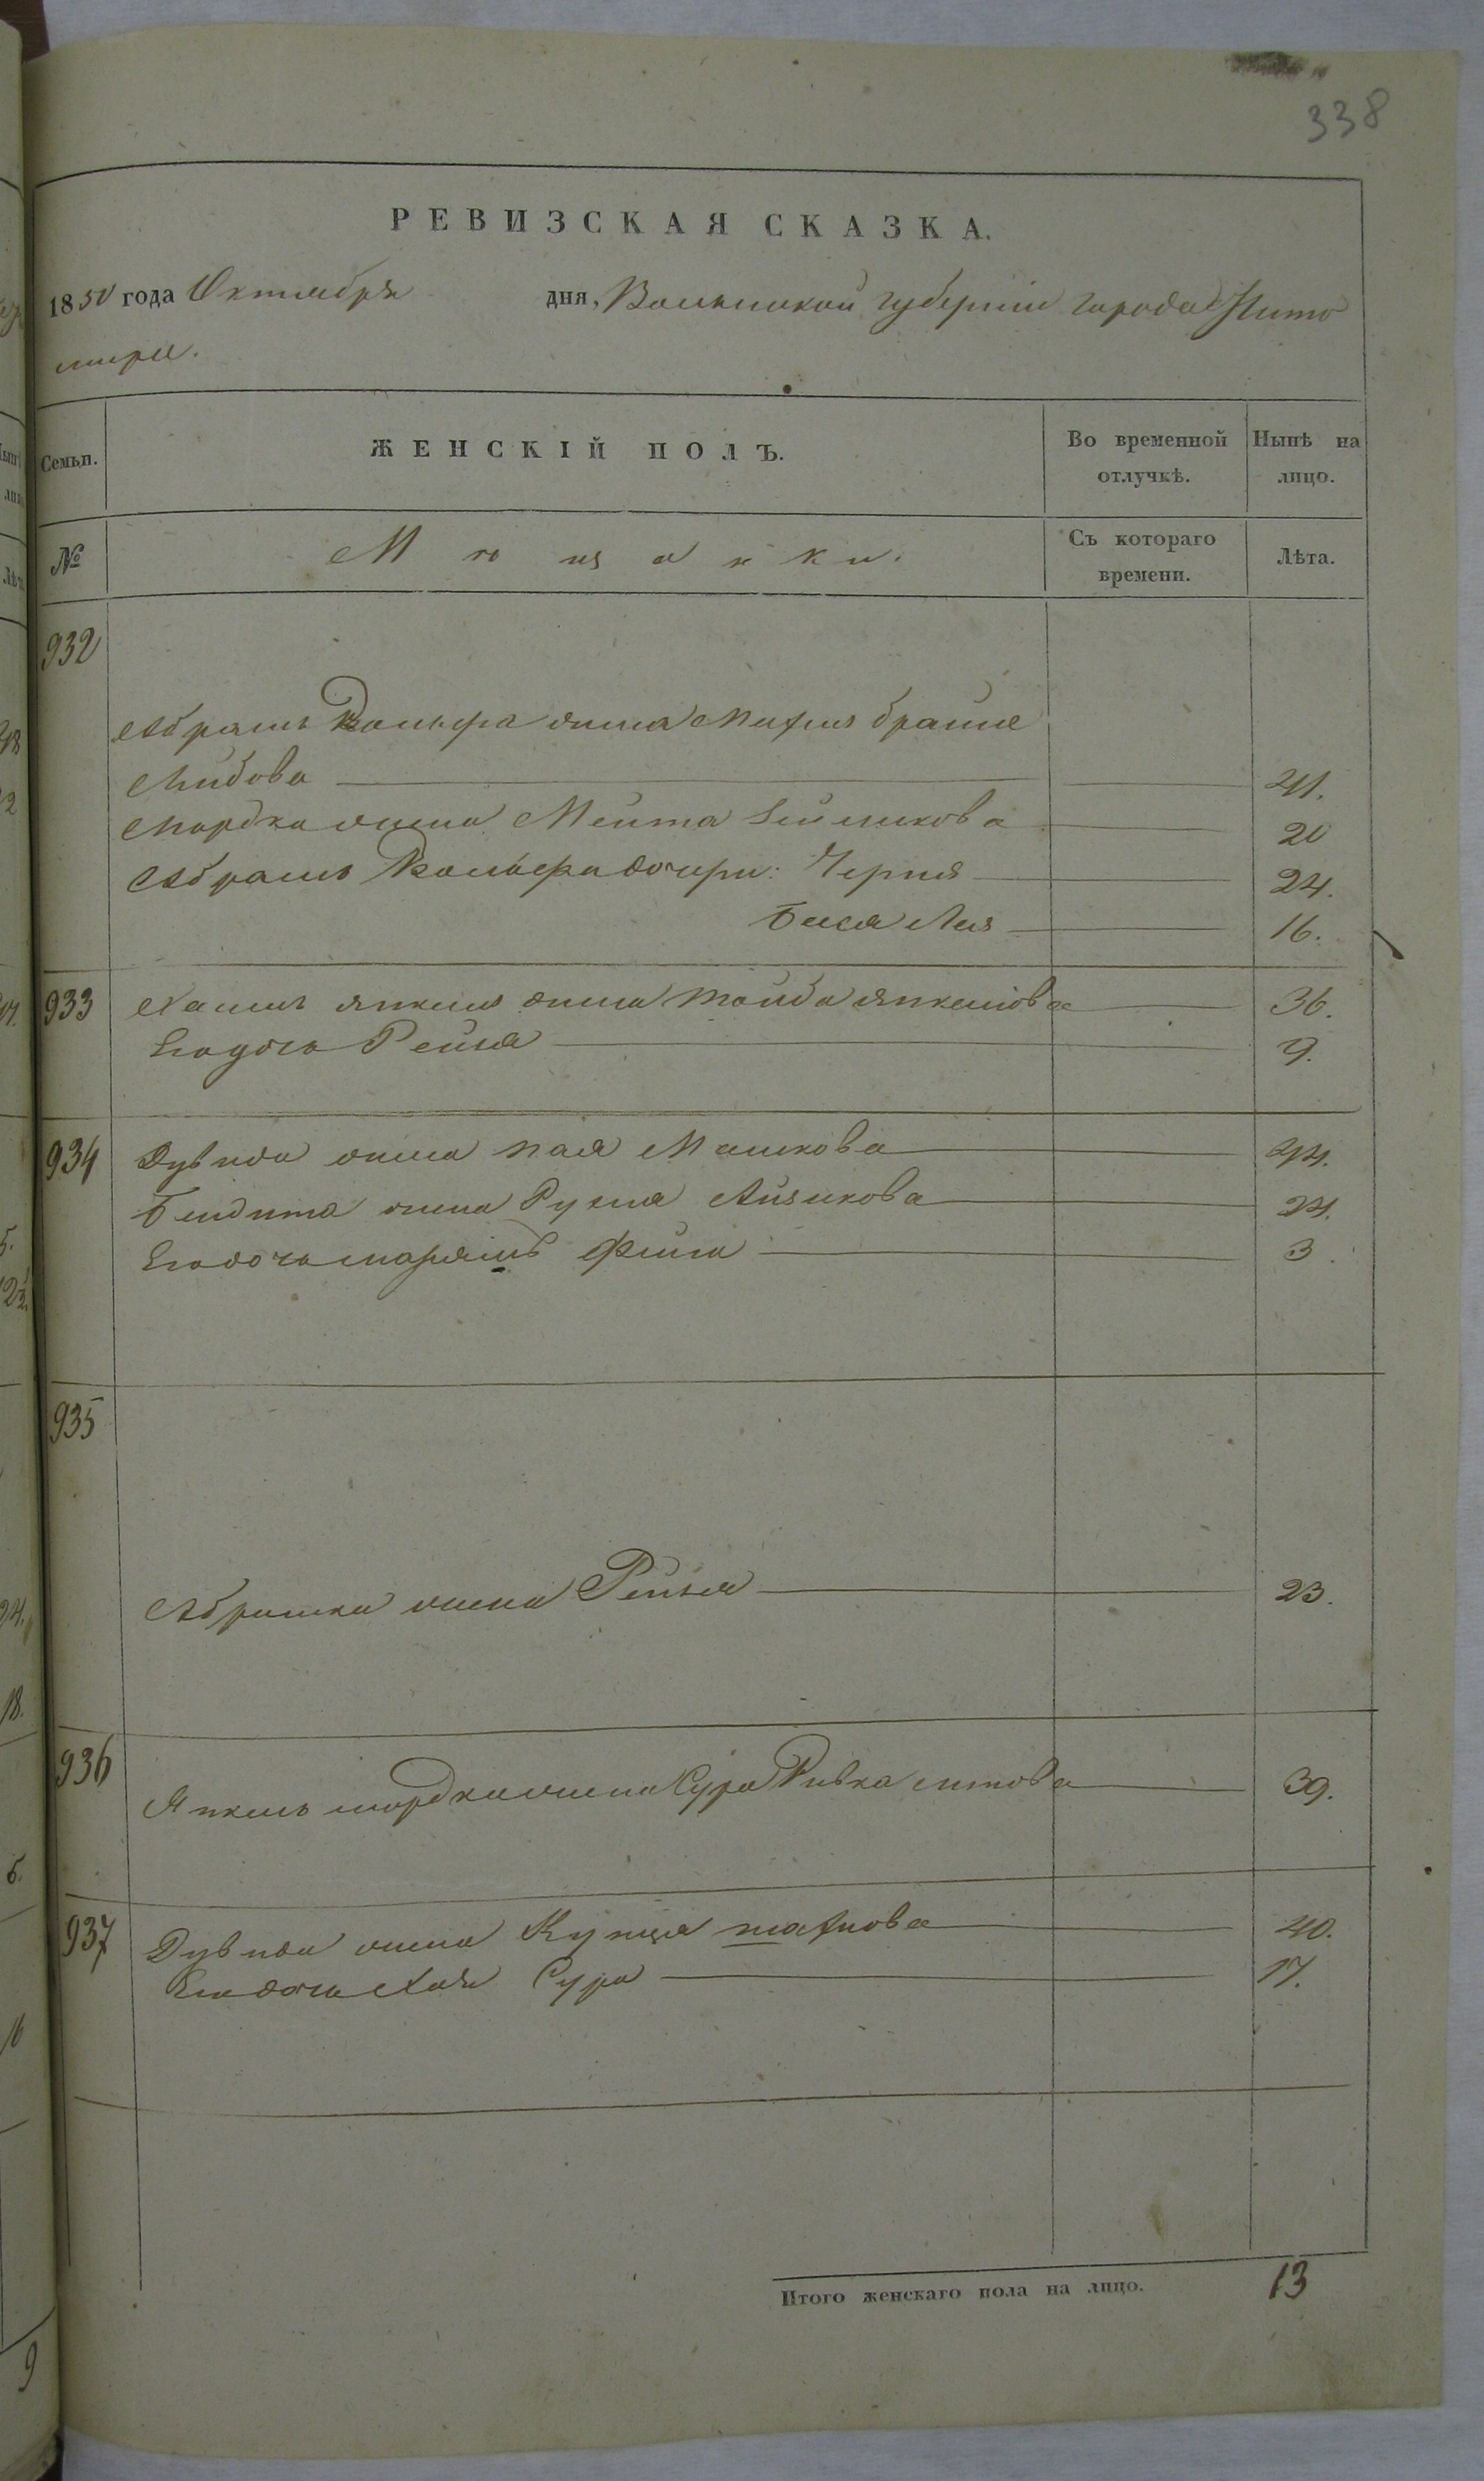 338
РЕВИЗСКАЯ СКАЗКА.
1850 года Октября дня, Волынской губерніи города Жито
мира.
Семьи. ЖЕНСКІЙ ПОЛЪ. Во временной отлучкѣ. Нынѣ на лицо.
№ Мѣщанки. Съ котораго времени. Лѣта.
932
Абрамъ Вольфа жена
Лейбова 41.
Мордка жена Мейта 20
Абрамъ Вольфа дочери: Черня 24.
Бася Лея 16.
933 жена Тойба Янкелiова 36.
Его дочь Рейзя 9.
934 Дувида жена Хая Машкова 44.
жена Рухля Айзикова 24.
Его дочь Марьямъ Фейга 3.
935
Абрамка жена Рейзя 23.
936
Янкель Мордка жена Сура Ривка 39.
937 Дувида жена 40.
Его дочь Хая Сура 17.
Итого женскаго пола на лицо. 13